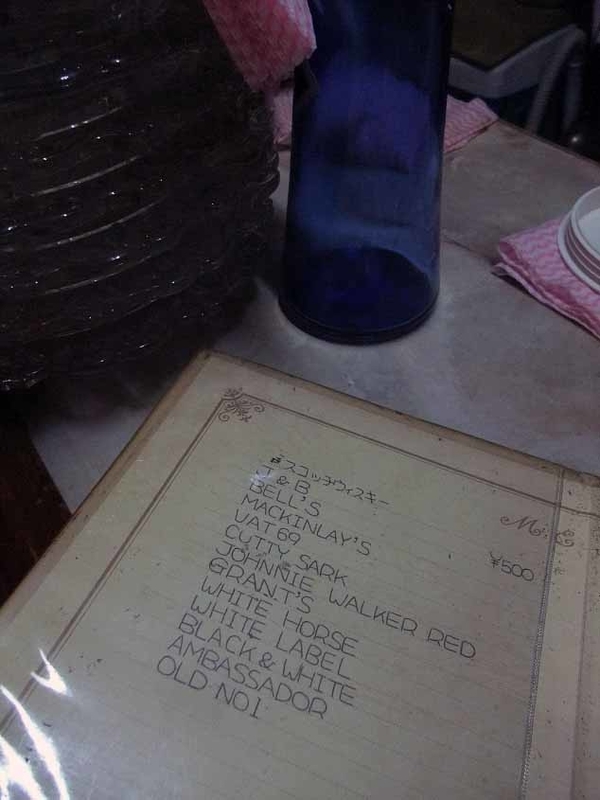 スコッチウィスキー
J & B
BELL'S
MACKINLAY'S
VAT 69
¥500
CUTTY SARK
JOHNNIE WALKER RED
GRANT'S
WHITE HORSE
WHITE LABEL
BLACK & WHITE
AMBASSADOR
OLD NO1